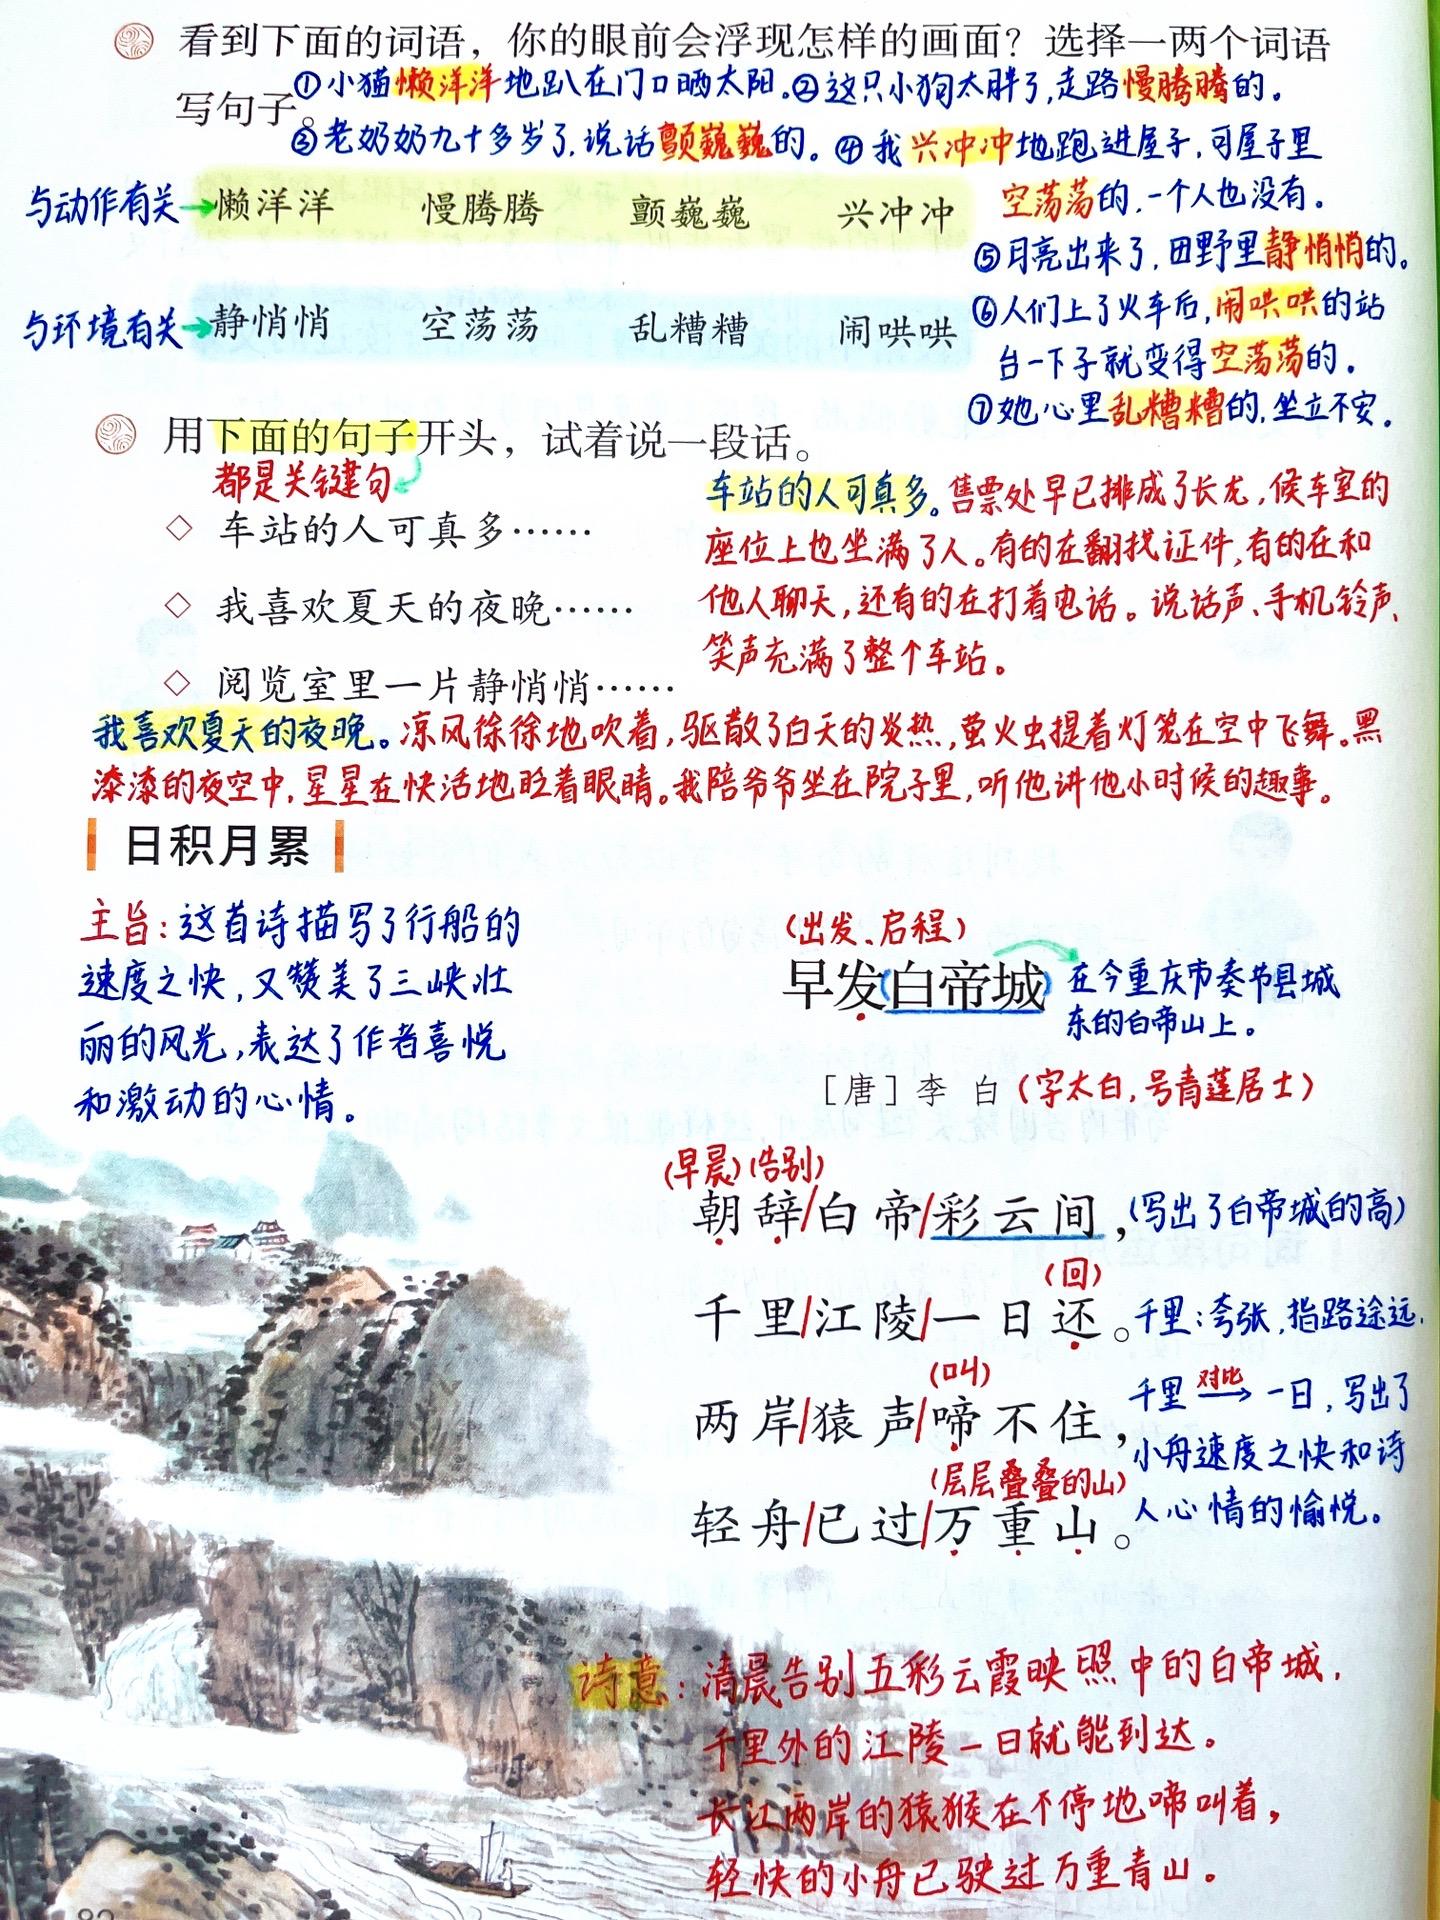 看到下面的词语，你的眼前会浮现怎样的画面？选择一两个词语
写句子。
①小猫懒洋洋地趴在门口晒太阳。②这只小狗太胖了，走路慢腾腾的。
③老奶奶九十多岁了，说话颤巍巍的。④我兴冲冲地跑进屋子，可屋子里
空荡荡的，一个人也没有。
与动作有关 懒洋洋 慢腾腾 颤巍巍 兴冲冲
⑤月亮出来了，田野里静悄悄的。
⑥人们上了火车后，闹哄哄的站
台一下子就变得空荡荡的。
与环境有关 静悄悄 空荡荡 乱糟糟 闹哄哄
⑦她心里乱糟糟的，坐立不安。
用下面的句子开头，试着说一段话。
都是关键句
◇ 车站的人可真多……
◇ 我喜欢夏天的夜晚……
◇ 阅览室里一片静悄悄……
车站的人可真多。售票处早已排成了长龙，候车室的
座位上也坐满了人。有的在翻找证件，有的在和
他人聊天，还有的在打着电话。说话声、手机铃声、
笑声充满了整个车站。
我喜欢夏天的夜晚。凉风徐徐地吹着，驱散了白天的炎热，萤火虫提着灯笼在空中飞舞。黑
漆漆的夜空中，星星在快活地眨着眼睛。我陪爷爷坐在院子里，听他讲他小时候的趣事。
日积月累
主旨：这首诗描写了行船的
速度之快，又赞美了三峡壮
丽的风光，表达了作者喜悦
和激动的心情。
（出发、启程）
早发（白帝城）
在今重庆市奉节县城
东的白帝山上。
［唐］李 白（字太白，号青莲居士）
（早晨）（告别）
朝辞/白帝/彩云间，（写出了白帝城的高）
（回）
千里/江陵/一日还。千里：夸张，指路途远，
（叫）
两岸/猿声/啼不住，
千里 对比 一日，写出了
小舟速度之快和诗
人心情的愉悦。
（层层叠叠的山）
轻舟/已过/万重山。
诗意：清晨告别五彩云霞映照中的白帝城，
千里外的江陵一日就能到达。
长江两岸的猿猴在不停地啼叫着，
轻快的小舟已驶过万重青山。